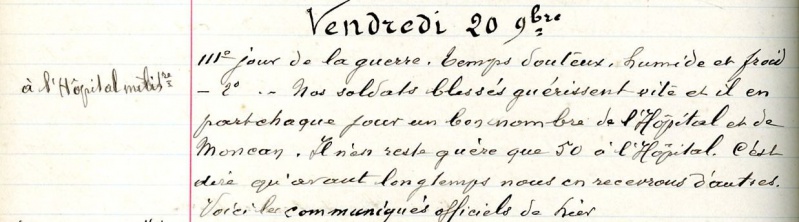 Vendredi 20 9bre
111e jour de la guerre. temps douteux, humide et froid
à l'Hôpital militre
- 2° .- Nos soldats blessés guérissent vite et il en
part chaque jour un bon nombre de l'Hôpital et de
Moncan. Il n'en reste guère que 50 à l'Hôpital. C'est
dire qu'avant longtemps nous en recevrons d'autres.
Voici les communiqués officiels de hier